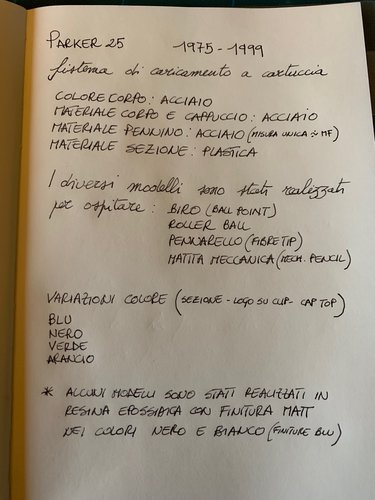 PARKER 25 1975-1999
Sistema di caricamento a cartuccia
COLORE CORPO: ACCIAIO
MATERIALE CORPO E CAPPUCCIO: ACCIAIO
MATERIALE PENNINO: ACCIAIO (MISURA UNICA: MF)
MATERIALE SEZIONE: PLASTICA
I diversi modelli sono stati realizzati
per ospitare: BIRO (BALL POINT)
ROLLER BALL
PENNARELLO (FIBRETIP)
MATITA MECCANICA (MECH. PENCIL)
VARIAZIONI COLORE (SEZIONE - LOGO SU CLIP - CAP TOP)
BLU
NERO
VERDE
ARANCIO
* ALCUNI MODELLI SONO STATI REALIZZATI IN
RESINA EPOSSIDICA CON FINITURA MATT
NEI COLORI NERO E BIANCO (FINITURE BLU)